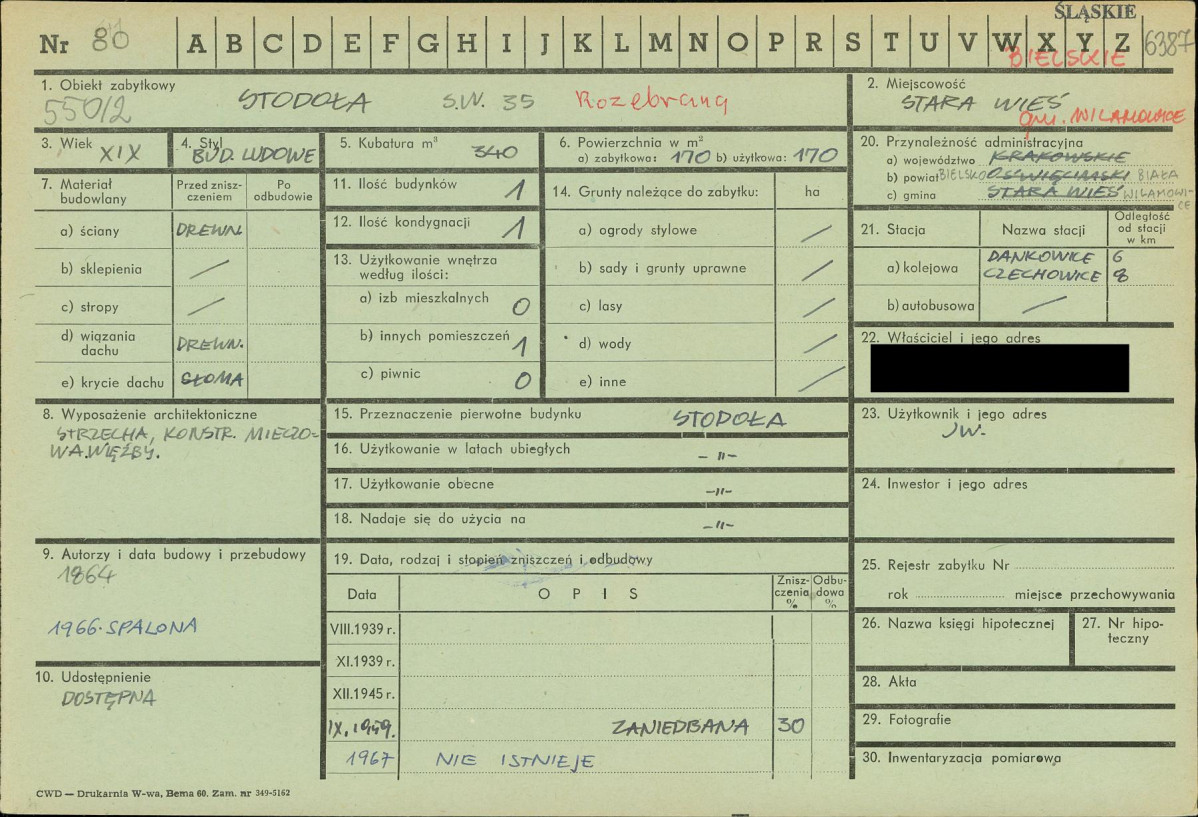 ŚLĄSKIE
Nr 80 A B C D E F G H I J K L M N O P R S T U V W X Y Z 6387
BIELSKIE
1. Obiekt zabytkowy
550/2 STODOŁA S.W. 35 Rozebrana
2. Miejscowość
STARA WIEŚ
gm. WILAMOWICE
3. Wiek XIX
4. Styl
BUD. LUDOWE
5. Kubatura m³ 340
6. Powierzchnia w m²
a) zabytkowa: 170 b) użytkowa: 170
20. Przynależność administracyjna
a) województwo KRAKOWSKIE
b) powiat BIELSKO OŚWIĘCIMSKI BIAŁA
c) gmina STARA WIEŚ WILAMOWI-
CE
7. Materiał budowlany
Przed znisz-
czeniem
Po
odbudowie
a) ściany DREWN.
b) sklepienia /
c) stropy /
d) wiązania
dachu DREWN.
e) krycie dachu SŁOMA
11. Ilość budynków 1
12. Ilość kondygnacji 1
13. Użytkowanie wnętrza
według ilości:
a) izb mieszkalnych 0
b) innych pomieszczeń 1
c) piwnic 0
14. Grunty należące do zabytku: ha
a) ogrody stylowe /
b) sady i grunty uprawne /
c) lasy /
d) wody /
e) inne /
21. Stacja Nazwa stacji
Odległość
od stacji
w km
a) kolejowa DANKOWICE 6
CZECHOWICE 8
b) autobusowa /
22. Właściciel i jego adres
8. Wyposażenie architektoniczne
STRZECHA, KONSTR. MIECZO-
WA WIĘŹBY.
15. Przeznaczenie pierwotne budynku STODOŁA
16. Użytkowanie w latach ubiegłych - " -
17. Użytkowanie obecne - " -
18. Nadaje się do użycia na - " -
23. Użytkownik i jego adres
JW.
24. Inwestor i jego adres
9. Autorzy i data budowy i przebudowy
1864
1966. SPALONA
10. Udostępnienie
DOSTĘPNA
19. Data, rodzaj i stopień zniszczeń i odbudowy
Data OPIS
Znisz-
czenia
%
Odbu-
dowa
%
VIII.1939 r.
XI.1939 r.
XII.1945 r.
IX.1959. ZANIEDBANA 30
1967 NIE ISTNIEJE
25. Rejestr zabytku Nr
rok miejsce przechowywania
26. Nazwa księgi hipotecznej
27. Nr hipo-
teczny
28. Akta
29. Fotografie
30. Inwentaryzacja pomiarowa
CWD — Drukarnia W-wa, Bema 60. Zam. nr 349-5162